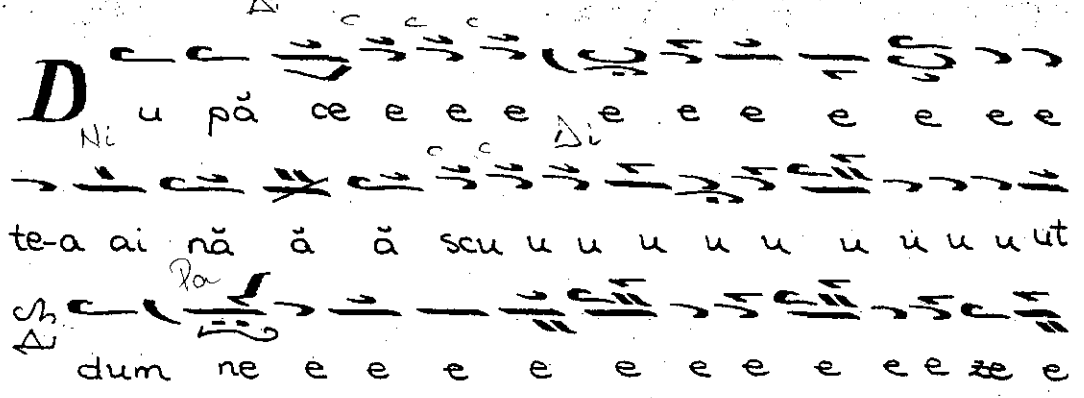 Δi
c c c
D u pă ce e e e e e e e e e e
Ni c c Δi
te-a ai nă ă ă scu u u u u u u u u u ut
Pa
Δi
dum ne e e e e e e e e e e ze e